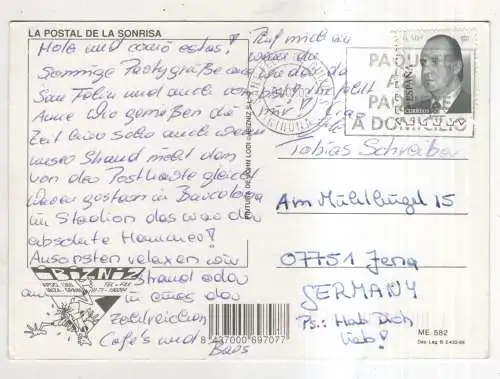 LA POSTAL DE LA SONRISA
Hola und comó estas!
Sonnige Partygrüße aus
San Feliu und auch von
Anne Wir genießen die
Zeit hier sehr auch wenn
unser Strand nicht dem
von der Postkarte gleicht
Waren gestern in Barcelona
im Stadion das war der
absolute Hammer!
Ansonsten relaxen wir
am Strand oder
in eines der
zahlreichen
Cafe's und
Bars
Ruf mich an
wenn du
wieder da
bist
IBIZNIZ
APDO. 1265
IBIZA - SPAIN
TEL - FAX
PINTURA DE JOHN LODI ©IBIZNIZ S.L.
8 437000 697077
GIRONA
ESPAÑA
CORREOS
PAQUE
A
PA
A DOMICILIO
Tobias Schreiber
Am Mühlhügel 15
07751 Jena
GERMANY
Ps.: Hab Dich
lieb!
ME. 582
Dep. Leg. B-2.432-96